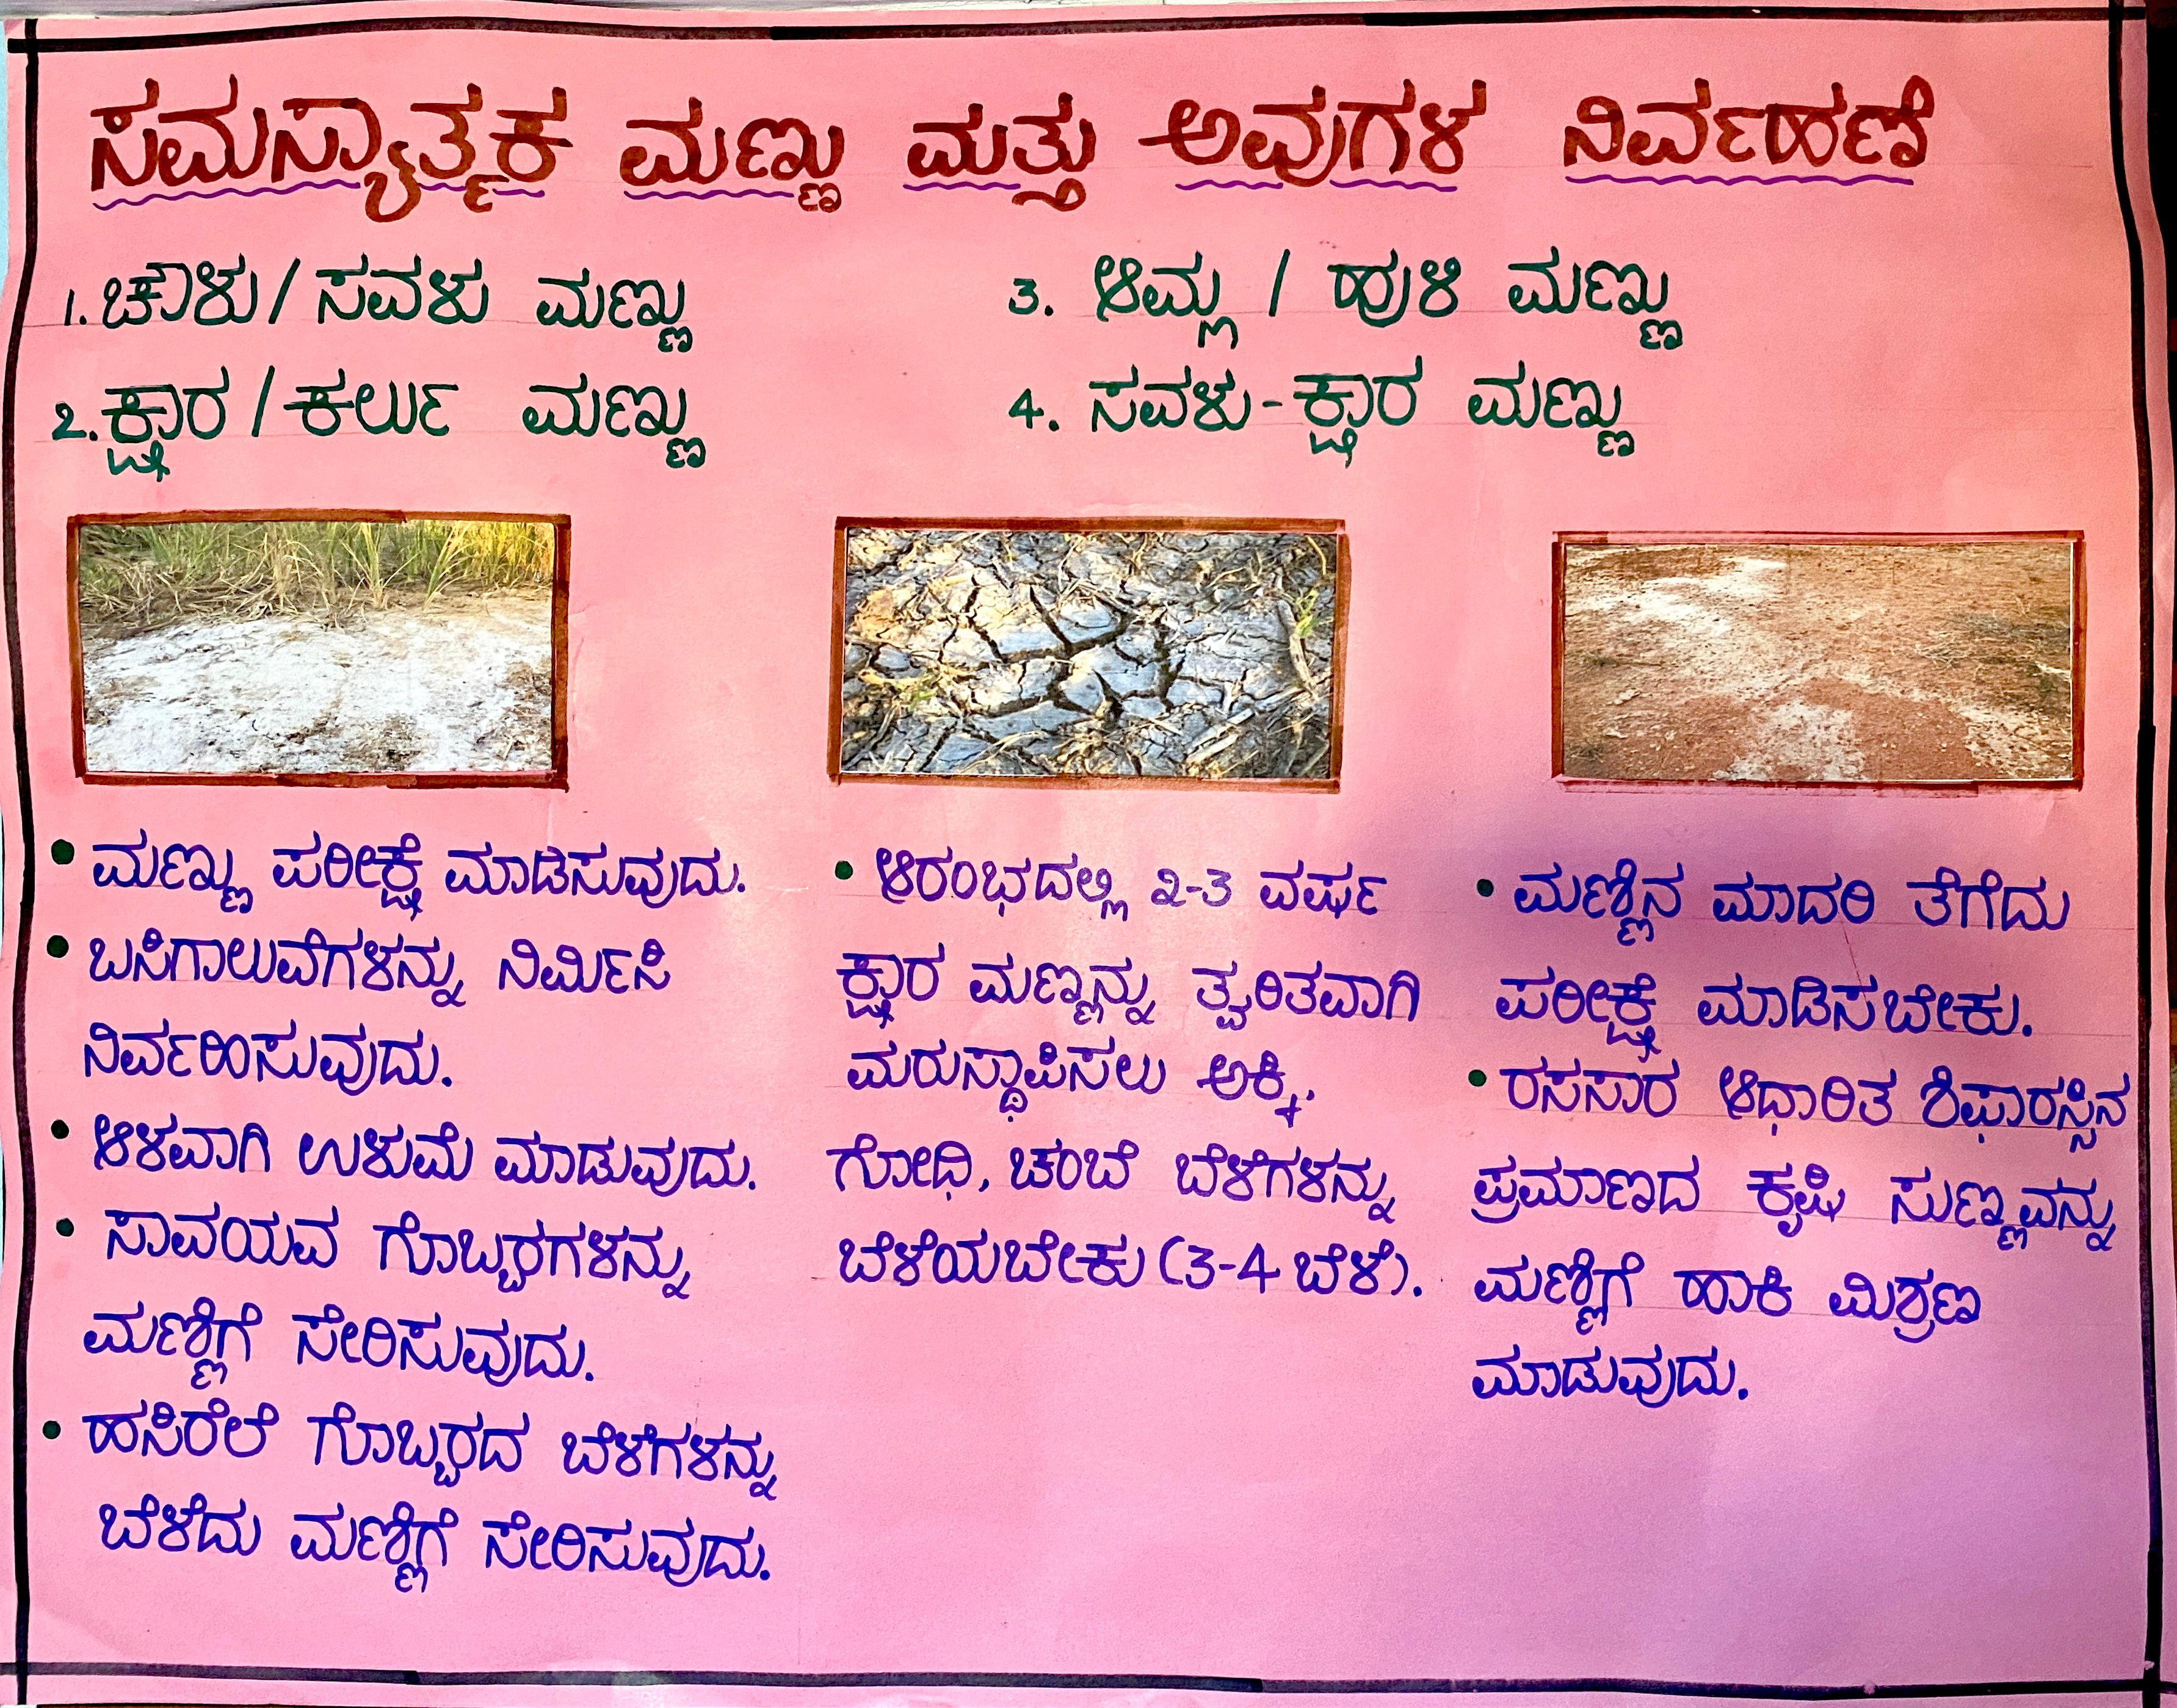 ಸಮಸ್ಯಾತ್ಮಕ ಮಣ್ಣು ಮತ್ತು ಅವುಗಳ ನಿರ್ವಹಣೆ
1. ಚೌಳು / ಸವಳು ಮಣ್ಣು
2. ಕ್ಷಾರ / ಕರ್ಲು ಮಣ್ಣು
3. ಆಮ್ಲ / ಹುಳಿ ಮಣ್ಣು
4. ಸವಳು-ಕ್ಷಾರ ಮಣ್ಣು
• ಮಣ್ಣು ಪರೀಕ್ಷೆ ಮಾಡಿಸುವುದು.
• ಬಸಿಗಾಲುವೆಗಳನ್ನು ನಿರ್ಮಿಸಿ
ನಿರ್ವಹಿಸುವುದು.
• ಆಳವಾಗಿ ಉಳುಮೆ ಮಾಡುವುದು.
• ಸಾವಯವ ಗೊಬ್ಬರಗಳನ್ನು
ಮಣ್ಣಿಗೆ ಸೇರಿಸುವುದು.
• ಹಸಿರೆಲೆ ಗೊಬ್ಬರದ ಬೆಳೆಗಳನ್ನು
ಬೆಳೆದು ಮಣ್ಣಿಗೆ ಸೇರಿಸುವುದು.
• ಆರಂಭದಲ್ಲಿ 2-3 ವರ್ಷ
ಕ್ಷಾರ ಮಣ್ಣನ್ನು ತ್ವರಿತವಾಗಿ
ಮರುಸ್ಥಾಪಿಸಲು ಅಕ್ಕಿ,
ಗೋಧಿ, ಚಂಬೆ ಬೆಳೆಗಳನ್ನು
ಬೆಳೆಯಬೇಕು (3-4 ಬೆಳೆ).
• ಮಣ್ಣಿನ ಮಾದರಿ ತೆಗೆದು
ಪರೀಕ್ಷೆ ಮಾಡಿಸಬೇಕು.
• ರಸಸಾರ ಆಧಾರಿತ ಶಿಫಾರಸ್ಸಿನ
ಪ್ರಮಾಣದ ಕೃಷಿ ಸುಣ್ಣವನ್ನು
ಮಣ್ಣಿಗೆ ಹಾಕಿ ಮಿಶ್ರಣ
ಮಾಡುವುದು.